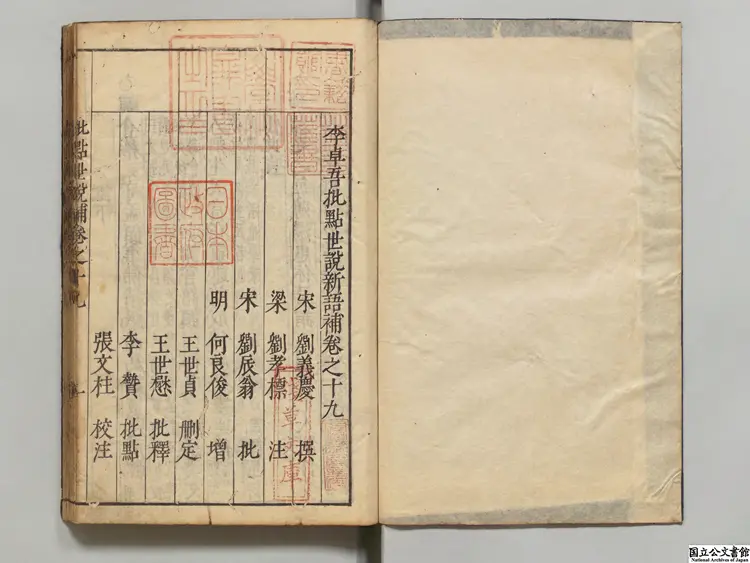 李卓吾批點世說新語補卷之十九
宋 劉義慶 撰
梁 劉孝標 注
宋 劉辰翁 批
明 何良俊 增
王世貞 刪定
王世懋 批釋
李贄 批點
張文柱 校注
批點世說補卷之十九
一
日本
政府
圖書
淺草文庫
国立公文書館
National Archives of Japan